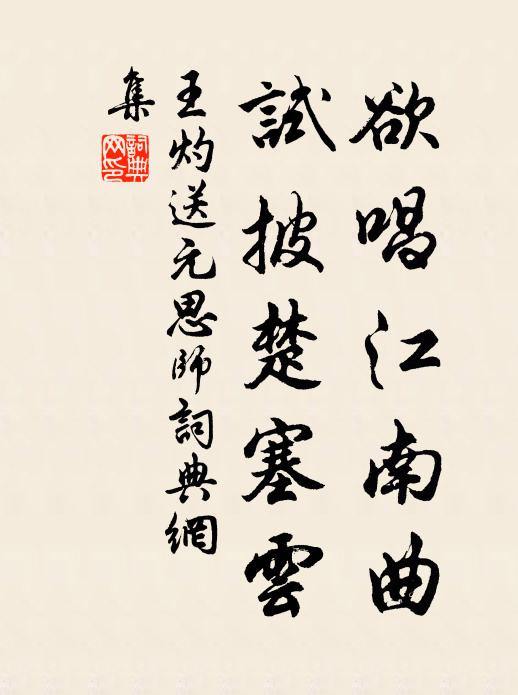 欲唱江南曲
試披楚塞雲
王灼送元思師詞典網
集
詞典
網印